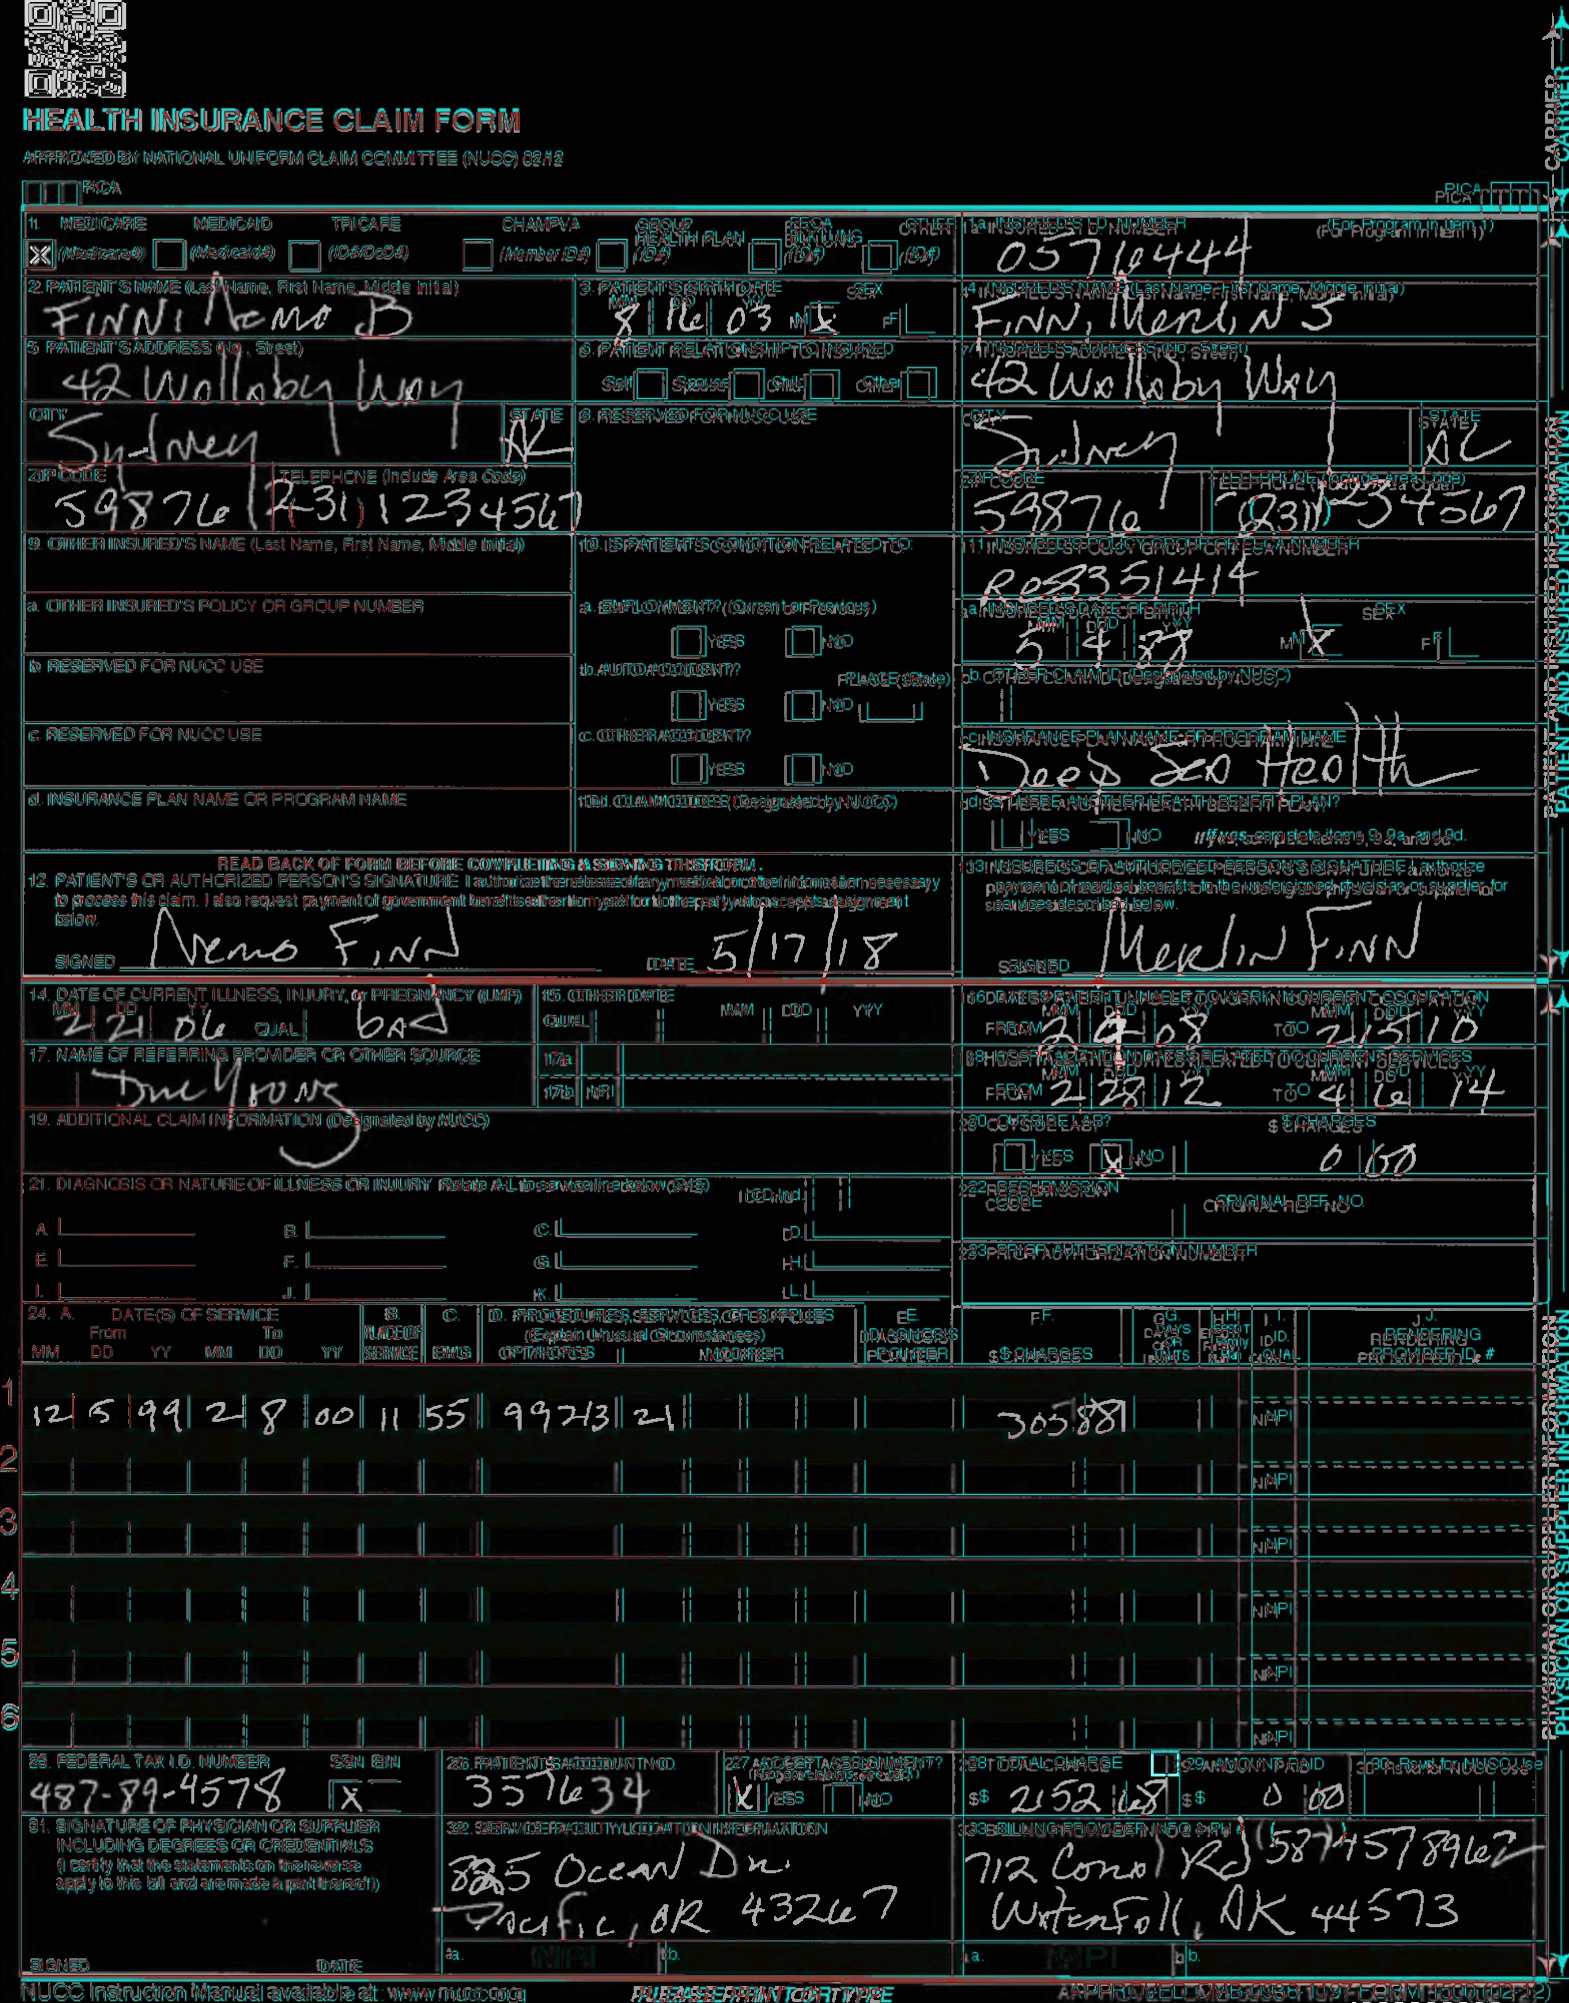 HEALTH INSURANCE CLAIM FORM
APPROVED BY NATIONAL UNIFORM CLAIM COMMITTEE (NUCC) 02/12
PICA PICA
CARRIER
1. MEDICARE MEDICAID TRICARE CHAMPVA GROUP HEALTH PLAN FECA BLK LUNG OTHER
X (Medicare#) (Medicaid#) (ID#/DoD#) (Member ID#) (ID#) (ID#) (ID#)
1a. INSURED'S I.D. NUMBER (For Program in Item 1)
05716444
2. PATIENT'S NAME (Last Name, First Name, Middle Initial)
FINN, Nemo B
3. PATIENT'S BIRTH DATE SEX
MM DD YY
8 16 03 M X F
4. INSURED'S NAME (Last Name, First Name, Middle Initial)
FINN, Merlin J
5. PATIENT'S ADDRESS (No., Street)
42 Wallaby Way
6. PATIENT RELATIONSHIP TO INSURED
Self Spouse Child Other
7. INSURED'S ADDRESS (No., Street)
42 Wallaby Way
CITY STATE
Sydney
8. RESERVED FOR NUCC USE
CITY STATE
Sydney
ZIP CODE TELEPHONE (Include Area Code)
59876 (231) 1234567
ZIP CODE TELEPHONE (Include Area Code)
59876 (231) 1234567
9. OTHER INSURED'S NAME (Last Name, First Name, Middle Initial)
10. IS PATIENT'S CONDITION RELATED TO:
11. INSURED'S POLICY GROUP OR FECA NUMBER
a. OTHER INSURED'S POLICY OR GROUP NUMBER
a. EMPLOYMENT? (Current or Previous)
YES NO
a. INSURED'S DATE OF BIRTH SEX
MM DD YY
5 4 88 M X F
b. RESERVED FOR NUCC USE
b. AUTO ACCIDENT? PLACE (State)
YES NO
b. OTHER CLAIM ID (Designated by NUCC)
c. RESERVED FOR NUCC USE
c. OTHER ACCIDENT?
YES NO
c. INSURANCE PLAN NAME OR PROGRAM NAME
Deep Sea Health
d. INSURANCE PLAN NAME OR PROGRAM NAME
10d. CLAIM CODES (Designated by NUCC)
d. IS THERE ANOTHER HEALTH BENEFIT PLAN?
YES NO If yes, complete items 9, 9a, and 9d.
PATIENT AND INSURED INFORMATION
READ BACK OF FORM BEFORE COMPLETING & SIGNING THIS FORM.
12. PATIENT'S OR AUTHORIZED PERSON'S SIGNATURE I authorize the release of any medical or other information necessary
to process this claim. I also request payment of government benefits either to myself or to the party who accepts assignment
below.
SIGNED Nemo Finn DATE 5/17/18
13. INSURED'S OR AUTHORIZED PERSON'S SIGNATURE I authorize
payment of medical benefits to the undersigned physician or supplier for
services described below.
SIGNED Merlin Finn
14. DATE OF CURRENT ILLNESS, INJURY, or PREGNANCY (LMP)
MM DD YY
2 21 06 QUAL. bad
15. OTHER DATE
QUAL. MM DD YY
16. DATES PATIENT UNABLE TO WORK IN CURRENT OCCUPATION
MM DD YY MM DD YY
FROM 2 9 08 TO 2 15 10
17. NAME OF REFERRING PROVIDER OR OTHER SOURCE
17a.
17b. NPI
18. HOSPITALIZATION DATES RELATED TO CURRENT SERVICES
MM DD YY MM DD YY
FROM 2 28 12 TO 4 6 14
19. ADDITIONAL CLAIM INFORMATION (Designated by NUCC)
20. OUTSIDE LAB? $ CHARGES
YES X NO 0 00
21. DIAGNOSIS OR NATURE OF ILLNESS OR INJURY Relate A-L to service line below (24E) ICD Ind.
A. B. C. D.
E. F. G. H.
I. J. K. L.
22. RESUBMISSION CODE ORIGINAL REF. NO.
23. PRIOR AUTHORIZATION NUMBER
24. A. DATE(S) OF SERVICE B. C. D. PROCEDURES, SERVICES, OR SUPPLIES E. F. G. H. I. J.
From To PLACE OF (Explain Unusual Circumstances) DIAGNOSIS DAYS OR EPSDT ID. RENDERING
MM DD YY MM DD YY SERVICE EMG CPT/HCPCS MODIFIER POINTER $ CHARGES UNITS QUAL. PROVIDER ID. #
1 12 5 99 2 8 00 11 55 99213 21 305 88 NPI
2 NPI
3 NPI
4 NPI
5 NPI
6 NPI
PHYSICIAN OR SUPPLIER INFORMATION
25. FEDERAL TAX I.D. NUMBER SSN EIN
487-89-4578 X
26. PATIENT'S ACCOUNT NO.
357634
27. ACCEPT ASSIGNMENT?
X YES NO
28. TOTAL CHARGE
$ 2152 68
29. AMOUNT PAID
$ 0 00
30. Rsvd for NUCC Use
31. SIGNATURE OF PHYSICIAN OR SUPPLIER
INCLUDING DEGREES OR CREDENTIALS
(I certify that the statements on the reverse
apply to this bill and are made a part thereof.)
SIGNED DATE
32. SERVICE FACILITY LOCATION INFORMATION
825 Ocean Dr.
Pacific, OR 43267
a. NPI b.
33. BILLING PROVIDER INFO & PH # (587)4578962
712 Coral Rd
Waterfall, AK 44573
a. NPI b.
NUCC Instruction Manual available at: www.nucc.org
PLEASE PRINT OR TYPE